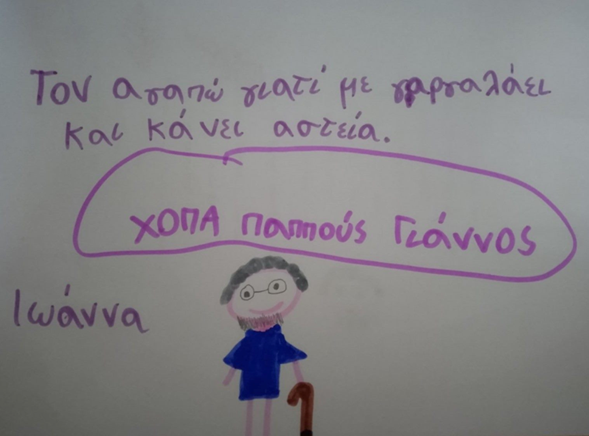 Τον αγαπώ γιατί με γαργαλάει
και κάνει αστεία.
ΧΟΠΑ παππούς Γιάννος
Ιωάννα